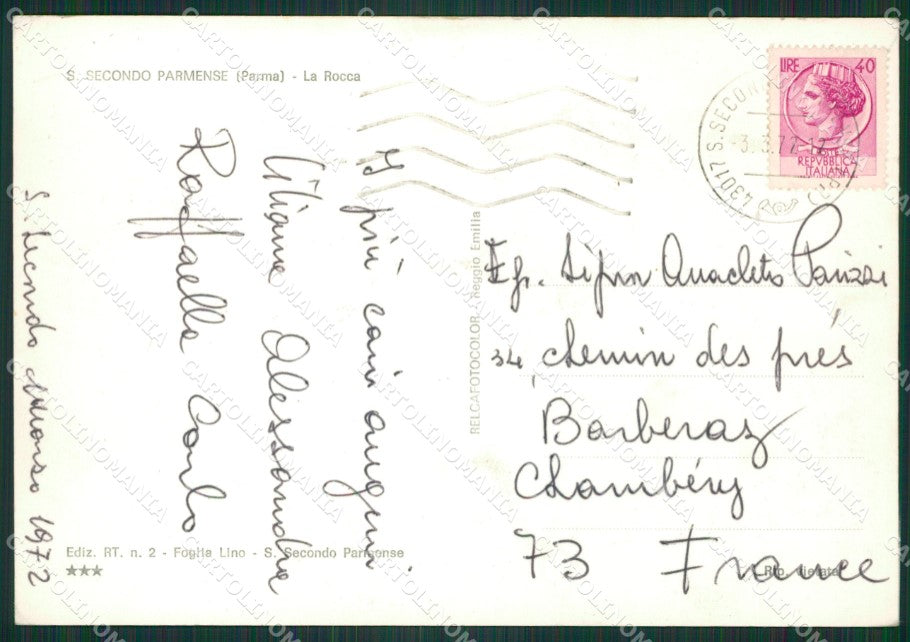 S. SECONDO PARMENSE (Parma) - La Rocca
I più cari auguri
Liliana Alessandra
Raffaella Carlo
S. Secondo Marzo 1972
Ediz. RT. n. 2 - Foglia Lino - S. Secondo Parmense
★★★
RELCAFOTOCOLOR - Reggio Emilia
LIRE 40
POSTE
REPVBBLICA
ITALIANA
43017 S. SECONDO
3.3.72.12
(PR)
Eg. Signor Anacleto Panizzi
34, chemin des prés
Barberaz
Chambéry
73 France
Rip. vietata
CARTOLINOMANIA